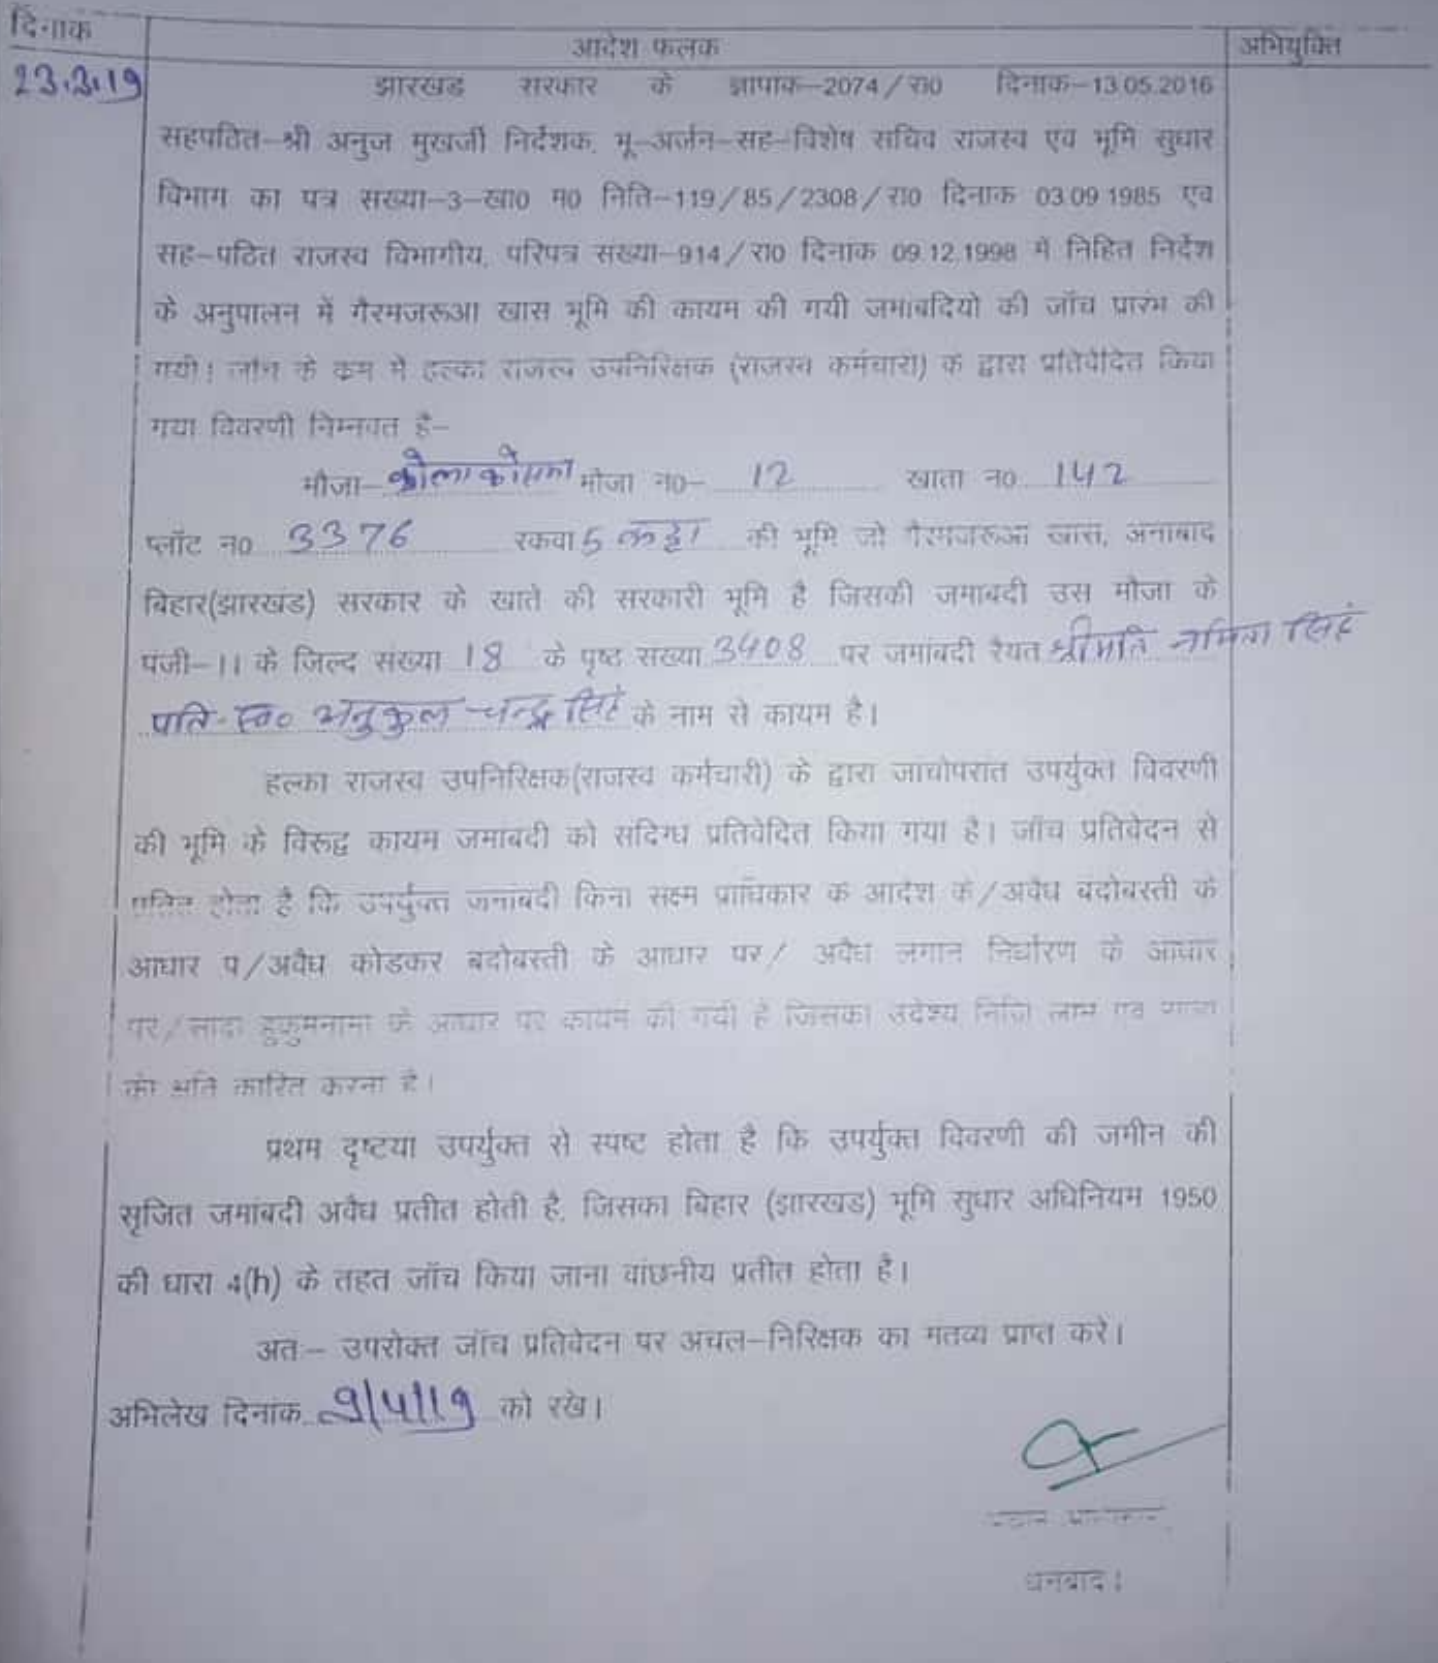 दिनांक आदेश फलक अभियुक्ति
23.3.19 झारखंड सरकार के ज्ञापांक-2074/रा0 दिनांक-13.05.2016
सहपठित-श्री अनुज मुखर्जी निर्देशक, भू-अर्जन-सह-विशेष सचिव राजस्व एवं भूमि सुधार
विभाग का पत्र संख्या-3-खा0 म0 निति-119/85/2308/रा0 दिनांक 03.09.1985 एवं
सह-पठित राजस्व विभागीय, परिपत्र संख्या-914/रा0 दिनांक 09.12.1998 में निहित निर्देश
के अनुपालन में गैरमजरूआ खास भूमि की कायम की गयी जमाबंदियो की जाँच प्रारंभ की
गयी। जाँच के क्रम में हल्का राजस्व उपनिरिक्षक (राजस्व कर्मचारी) के द्वारा प्रतिवेदित किया
गया विवरणी निम्नवत है-
मौजा- मौजा न0- 12 खाता न0 142
प्लॉट न0 3376 रकवा 5 कट्ठा की भूमि जो गैरमजरूआ खास, अनाबाद
बिहार(झारखंड) सरकार के खाते की सरकारी भूमि है जिसकी जमाबंदी उस मौजा के
पंजी-।। के जिल्द संख्या 18 के पृष्ट संख्या 3408 पर जमांबदी रैयत श्रीमति नमिता सिंह
पति-स्व० अनुकुल चन्द्र सिंह के नाम से कायम है।
हल्का राजस्व उपनिरिक्षक(राजस्व कर्मचारी) के द्वारा जांचोपरांत उपर्युक्त विवरणी
की भूमि के विरूद्ध कायम जमांबदी को संदिग्ध प्रतिवेदित किया गया है। जाँच प्रतिवेदन से
प्रतित होता है कि उपर्युक्त जमांबदी बिना सक्ष्म प्राधिकार के आदेश के/अवैध बंदोबस्ती के
आधार प/अवैध कोडकर बंदोबस्ती के आधार पर/ अवैध लगान निर्धारण के आधार
पर/सादा हुकुमनामा के आधार पर कायम की गयी है जिसका उदेश्य निजि लाभ एवं
को क्षति कारित करना है।
प्रथम दृष्टया उपर्युक्त से स्पष्ट होता है कि उपर्युक्त विवरणी की जमीन की
सृजित जमांबदी अवैध प्रतीत होती है, जिसका बिहार (झारखंड) भूमि सुधार अधिनियम 1950
की धारा 4(h) के तहत जाँच किया जाना वांछनीय प्रतीत होता है।
अतः- उपरोक्त जाँच प्रतिवेदन पर अंचल-निरिक्षक का मंतव्य प्राप्त करें।
अभिलेख दिनांक 9/4/19 को रखे।
धनबाद।